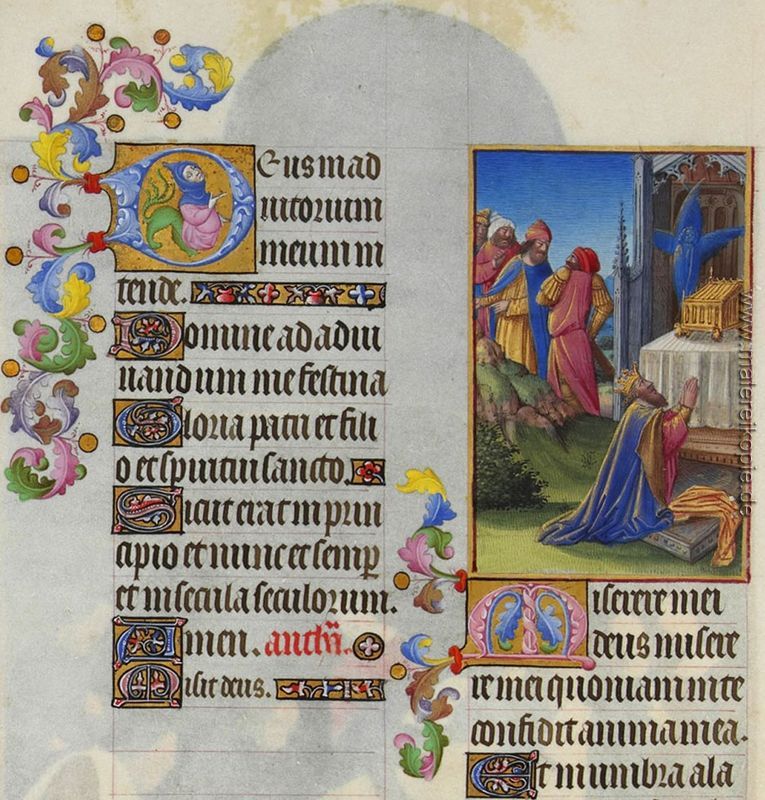 Deus in ad
iutorium
meum in
tende.
Domine ad adiu
uandum me festina
Gloria patri et fili
o et spiritui sancto.
Sicut erat in prin
cipio et nunc et semp
et in secula seculorum.
Amen. anthā.
Misit deus.
Miserere mei
deus misere
re mei quoniam in te
confidit anima mea.
Et in umbra ala
www.malereikopie.de